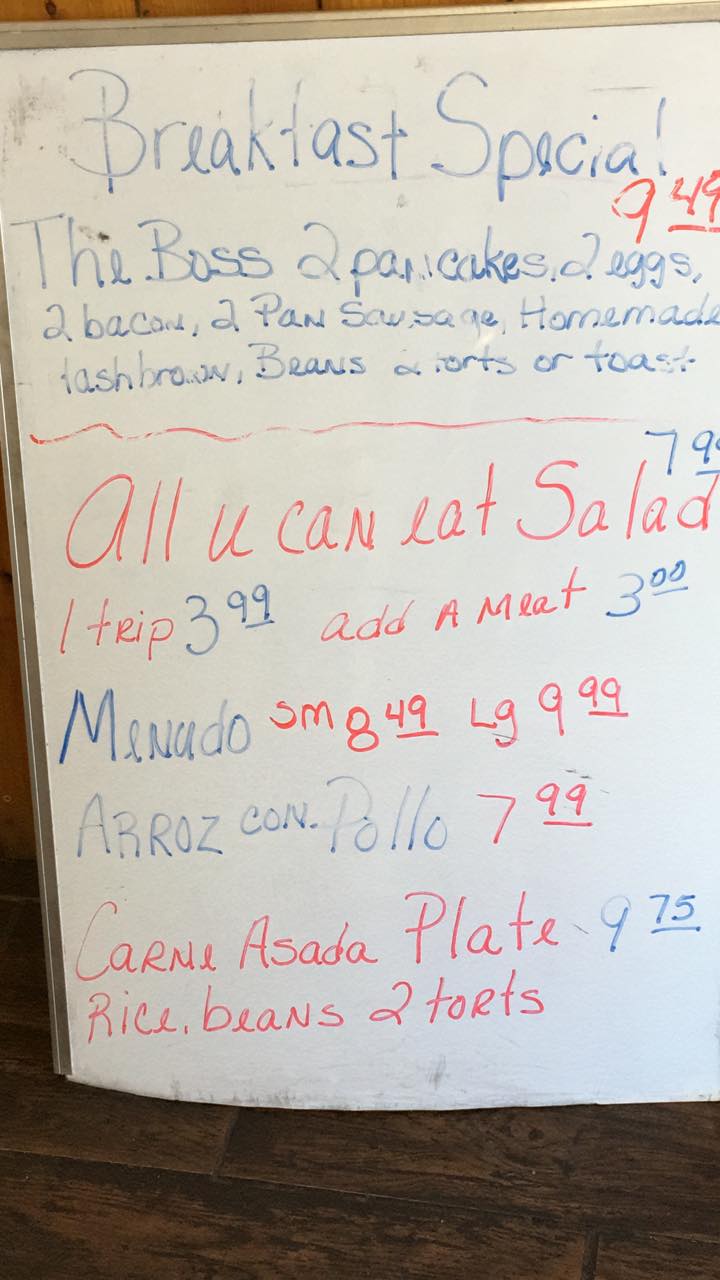 Breakfast Special
9 49
The Boss 2 pancakes, 2 eggs,
2 bacon, 2 Pan Sausage, Homemade
hashbrown, Beans 2 torts or toast
7 99
All u can eat Salad
1 trip 3 99 add A Meat 3 00
Menudo SM 8 49 Lg 9 99
ARROZ CON Pollo 7 99
Carne Asada Plate 9 75
Rice. beans 2 torts